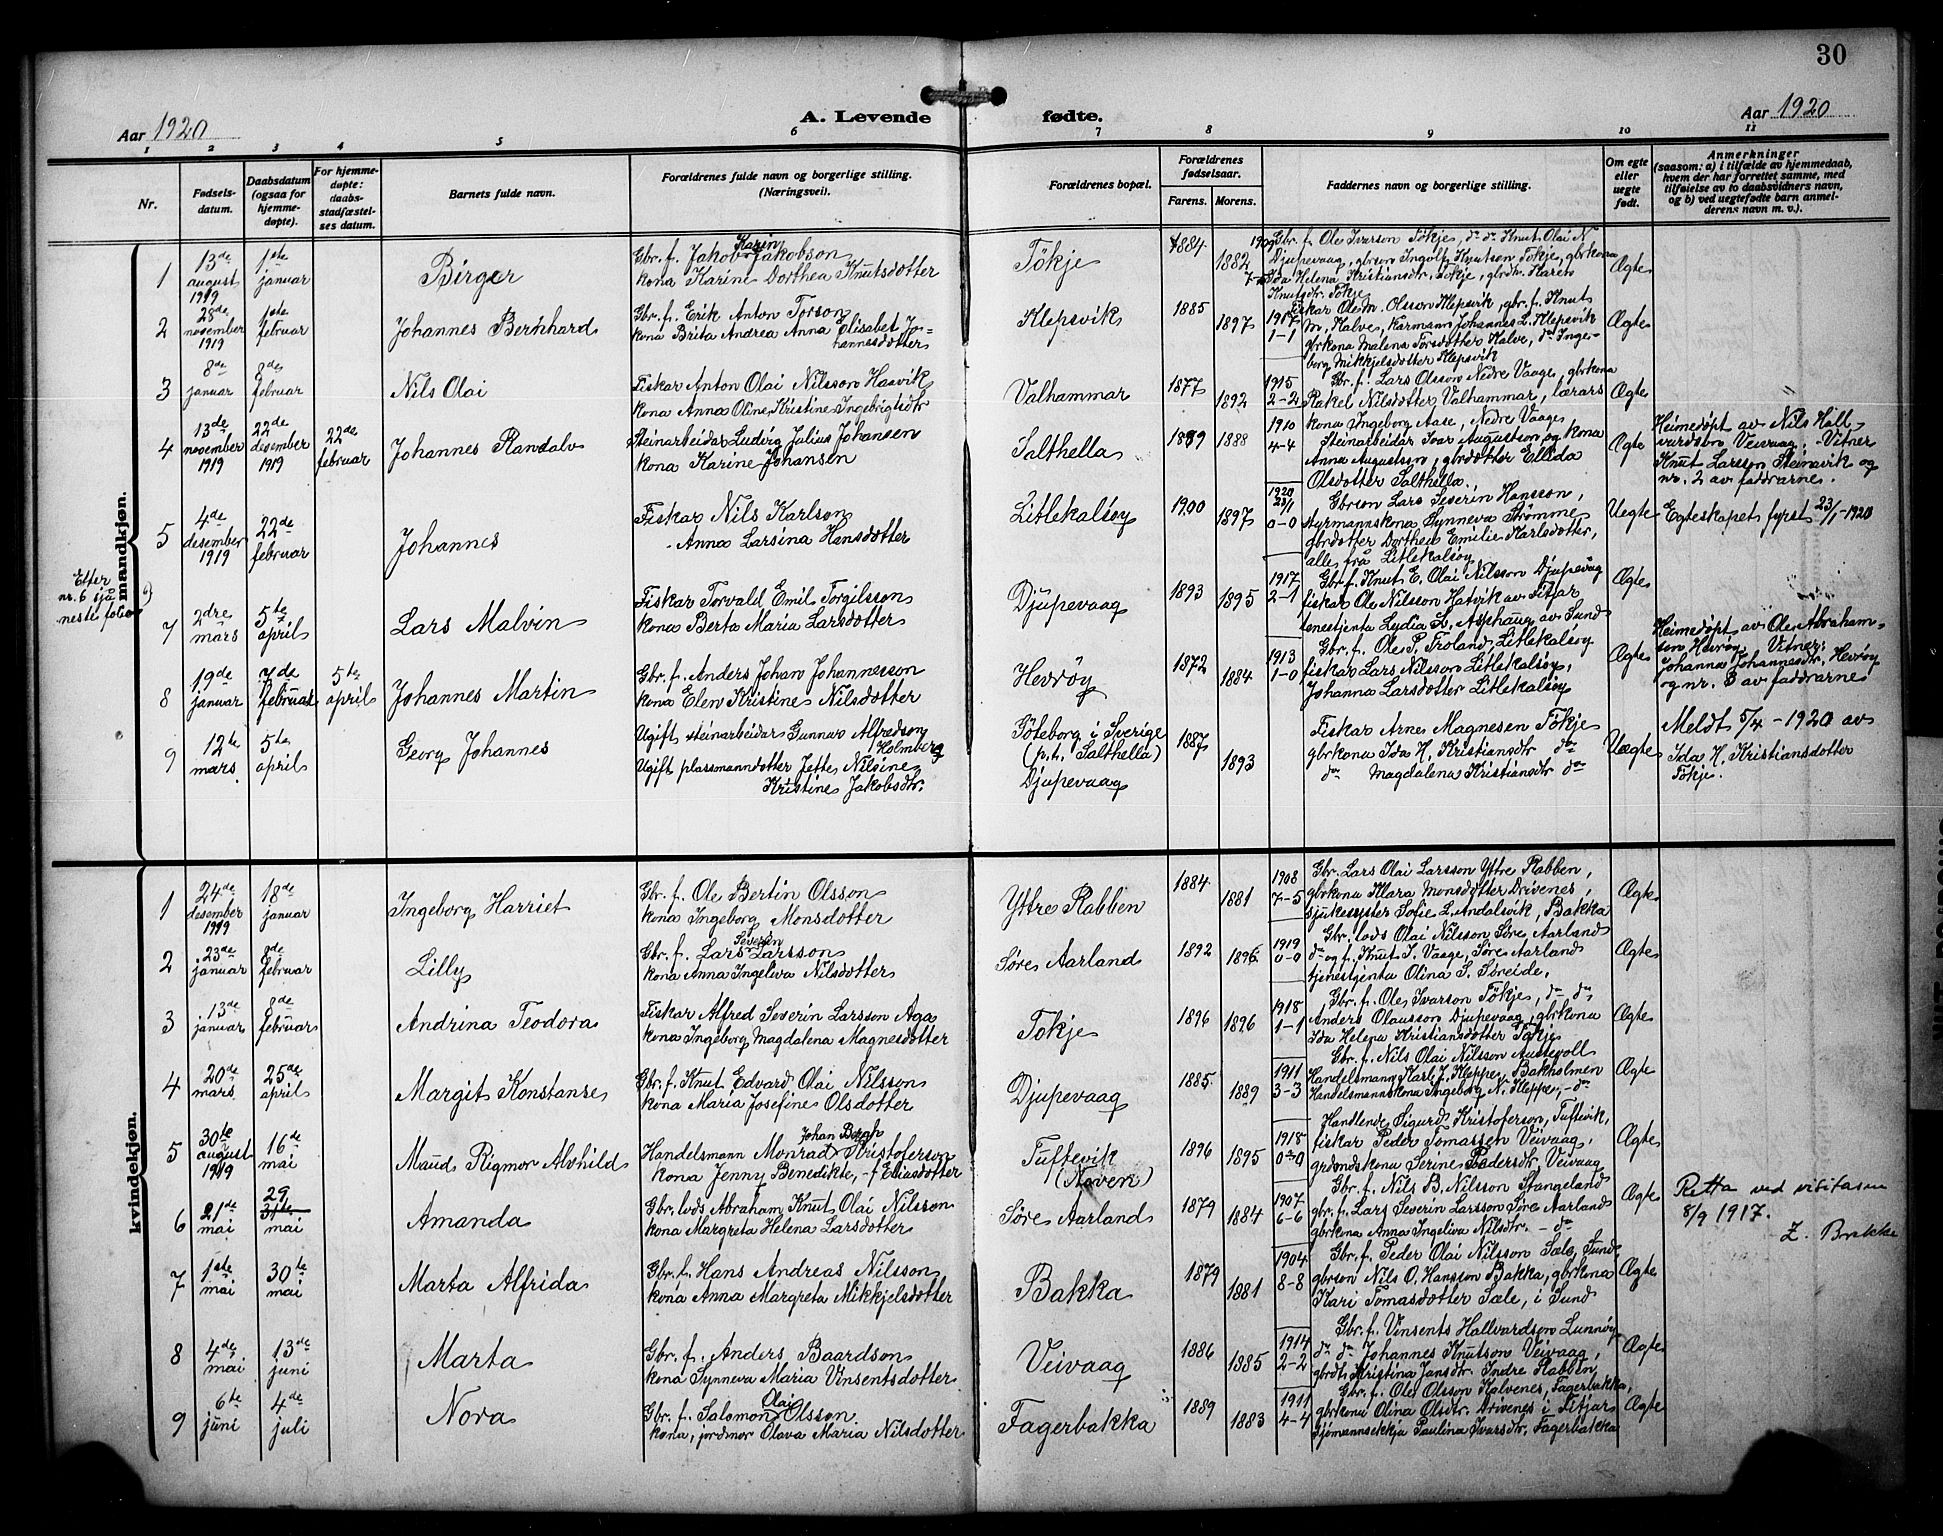 30
Aar 1920
A. Levende fødte.
Aar 1920
1 2 3 4 5 6 7 8 9 10 11
Nr.
Fødsels-
datum.
Daabsdatum
(ogsaa for
hjemme-
døpte).
For hjemme-
døpte:
daabs-
stadfæstel-
ses datum.
Barnets fulde navn.
Forældrenes fulde navn og borgerlige stilling.
(Næringsvei).
Forældrenes bopæl.
Forældrenes
fødselsaar.
Farens. Morens.
Faddernes navn og borgerlige stilling.
Om egte
eller
uegte
født.
Anmerkninger
(saasom: a) i tilfælde av hjemmedaab,
hvem der har forrettet samme, med
tilføielse av to daabsvidners navn,
og b) ved uegtefødte barn anmel-
derens navn m. v.).
mandkjøn.
1
13de
august
1919
1ste
januar
Birger
Karin
Gbr. f. Jakob Jakobson
kona Karine Dorthea Knutsdotter
Tökje
1884
1882
1909
Gbr. f. Ole Ivarson Tökje, do do Knut Olai N
Djupevaag, gbrson Ingolf Knutson Tökje, gbrkona
Ida Helena Kristiansdtr. Tökje, gbrdtr. Karen
Knutsdtr. Tökje
Ægte
2
28de
november
1919
1ste
februar
Johannes Bernhard
Gbr. f. Erik Anton Torson
kona Brita Andrea Anna Elisabet Jo-
hannesdotter
Klepsvik
1885
1897
1917
1-1
Fiskar Ole M. Olsson Klepsvik, gbr. f. Knut
M. Kalve, Karmann Johannes L. Klepsvik
gbrkona Malena Torsdotter Kalve, do Inge-
borg Mikkjelsdotter Klepsvik
Ægte
3
8de
januar
8de
februar
Nils Olai
Fiskar Anton Olai Nilsson Haavik
kona Anna Oline Kristine Ingebrigtsdtr
Valhammar
1877
1892
1915
2-2
Gbr. f. Lars Olsson Nedre Vaage, gbrkona
Rakel Nilsdotter Valhammar, lærars
kona Ingeborg Aase, Nedre Vaage
Ægte
4
13de
november
1919
22de
desember
1919
22de
februar
Johannes Randalv
Steinarbeidar Ludvig Julius Johansen
kona Karine Johansen
Salthella
1889
1888
1910
4-4
Steinarbeidar Ivar Augustson og kona
Anna Augustson, gbrdotter Ellida
Olsdotter Salthella.
Ægte
Heimedøpt av Nils Hall-
vardsbn Veivaag. Vitner
Knut Larsson Steinsvik og
nr. 2 av faddrarne.
5
4de
desember
1919
22de
februar
Johannes
Fiskar Nils Karlson
Anna Larsina Hansdotter
Litlekalsøy
1900
1897
1920
23/1
0-0
Gbrson Lars Severin Hansson,
styrmannskona Synneva Strømme
gbrdotter Dorthea Emilie Karlsdotter,
alle frå Litlekalsøy
Uegte
Egteskapet fyrst 23/1-1920
Etter
nr. 6 sjaa
neste folio
7
2dre
mars
5te
april
Lars Malvin
Fiskar Torvald Emil Torgilsson
kona Berta Maria Larsdotter
Djupevaag
1893
1895
1917
2-1
Gbr. f. Knut E. Olai Nilsson Djupevaag
fiskar Ole Nilsson Hatvik av Fitjar
tenestjenta Lydia L. Asphaug av Sund
Ægte
8
19de
januar
7de
februar
5te
april
Johannes Martin
Gbr. f. Anders Johan Johannesson
kona Elen Kristine Nilsdotter
Hevrøy
1872
1884
1913
1-0
Gbr. f. Ole P. Troland, Litlekalsøy
fiskar Lars Nilsson Litlekalsøy,
Johanna Larsdotter Litlekalsøy
Ægte
Heimedøpt av Ole Abraham-
son Hevrøy. Vitner:
Johanna Johannesdtr, Hevrøy
og nr. 3 av faddrarne
9
12te
mars
5te
april
Georg Johannes
Ugift steinarbeidar Gunnar Alfredson
Holmberg
Ugift plassmanndotter Jette Nilsine
Kristine Jakobsdtr.
Göteborg i Sverige
(p.t. Salthella)
Djupevaag
1887
1893
Fiskar Arne Magnesen Tökje
gbrkona Ida H. Kristiansdtr do
do Magdalena Kristiansdtr do
Uegte
Meldt 5/4-1920 av
Ida H. Kristiansdotter
Tökje.
kvindekjøn.
1
24de
desember
1919
18de
januar
Ingeborg Harriet
Gbr. f. Ole Bertin Olsson
kona Ingeborg Monsdotter
Yttre Rabben
1884
1881
1908
7-5
Gbr. Lars Olai Larsson Yttre Rabben,
gbrkona Klara Monsdotter Drivenes,
sjukesyster Sofie L. Andalsvik, Bakka
Ægte
2
23de
januar
8de
februar
Lilly
Severin
Gbr. f. Lars Larsson
kona Anna Ingeliva Nilsdotter
Søre Aarland
1892
1896
1919
0-0
Gbr. lods Olai Nilsson Søre Aarland
do og f. Knut I. Vaage, Søre Aarland
tjenestjenta Olina S. Søreide.
Ægte
3
13de
januar
8de
februar
Andrina Teodora
Fiskar Alfred Severin Larsson Aga
kona Ingeborg Magdalena Magnesdotter
Tökje
1896
1896
1918
1-1
Gbr. f. Ole Ivarson Tökje, do do
Anders Olausson Djupevaag, gbrkona
Ida Helena Kristiansdotter Tökje
Ægte
4
20de
mars
25de
april
Margit Konstanse
Gbr. f. Knut Edvard Olai Nilsson
kona Maria Josefine Olsdotter
Djupevaag
1885
1889
1911
3-3
Gbr. f. Nils Olai Nilsson Austevoll
Handelsmann Karl J. Kleppe, Bakholmen
Handelsmannskona Ingeborg N. Kleppe, do
Ægte
5
30te
august
1919
16de
mai
Maud Rigmor Alvhild
Johan Bergh
Handelsmann Monrad Kristoferson
kona Jenny Benedikte, f. Eliasdotter
Tuftevik
1896
1895
1918
0-0
Handlende Sigurd Kristoferson, Tuftevik,
fiskar Peder Tomassen Veivaag,
grdmdskona Serine Pedersdtr, Veivaag
Ægte
6
21de
mai
29
31te
mai
Amanda
Gbr. lods Abraham Knut Olai Nilsson
kona Margreta Helena Larsdotter
Søre Aarland
1879
1884
1907
6-6
Gbr. f. Nils B. Nilsson Stangeland
gbr. f. Lars Severin Larsson Søre Aarland
gbrkona Anna Ingeliva Nilsdtr. - do
Ægte
Retta ved visitasen
8/9 1917.
Z. Brekke
7
1ste
mai
30te
mai
Marta Alfrida
Gbr. f. Hans Andreas Nilsson
kona Anna Margreta Mikkjelsdotter
Bakka
1879
1881
1904
8-8
Gbr. f. Peder Olai Nilsson Sæle, Sund
gbrson Nils O. Hansson Bakka, gbrkona
Kari Tomasdotter Sæle, i Sund
Ægte
8
4de
mai
13de
juni
Marta
Gbr. f. Anders Baardson
kona Synneva Maria Vinsentsdotter
Veivaag
1886
1885
1914
2-2
Gbr. f. Vinsents Hallvardson Lunnøy
do do Johannes Knutson Veivaag,
gbrdt. Kristina Jansdtr. Indre Rabben
Ægte
9
6te
juni
4de
juli
Nora
Olai
Gbr. f. Salomon Olsson
kona, jordmor Olava Maria Nilsdotter
Fagerbakka
1889
1883
1911
4-4
Gbr. f. Ole Olsson Kalvenes, Fagerbakka,
gbrkona Olina Olsdtr. Drivenes i Fitjar
Sjømannsekkja Paulina Ivarsdtr. Fagerbakka
Ægte